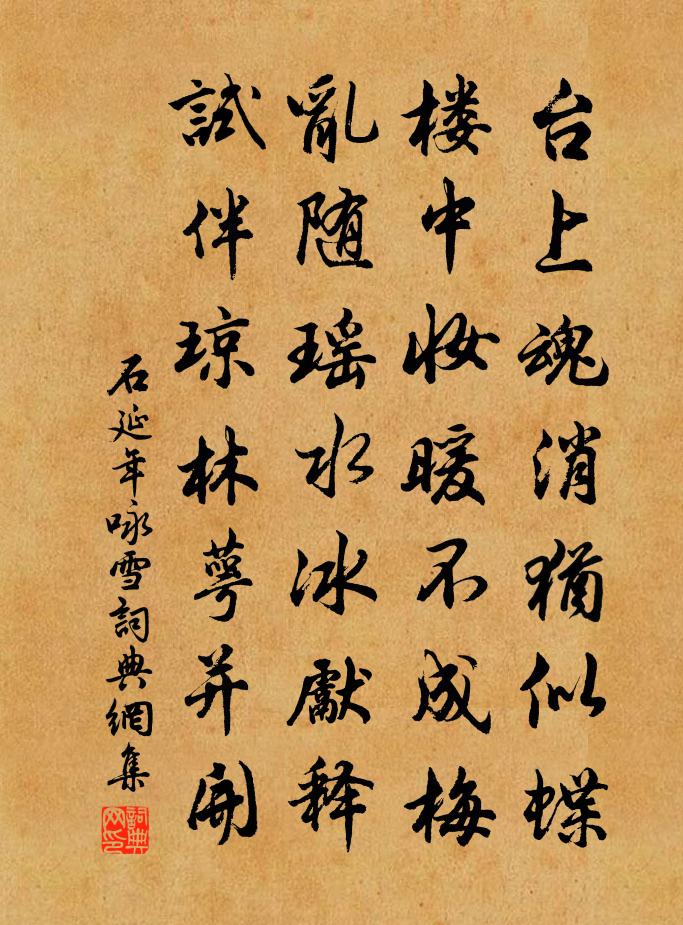 台上魂消猶似蝶
楼中妝暖不成梅
亂随瑶水冰獻释
試伴琼林萼并開
石延年咏雪詞典網集
詞典网印